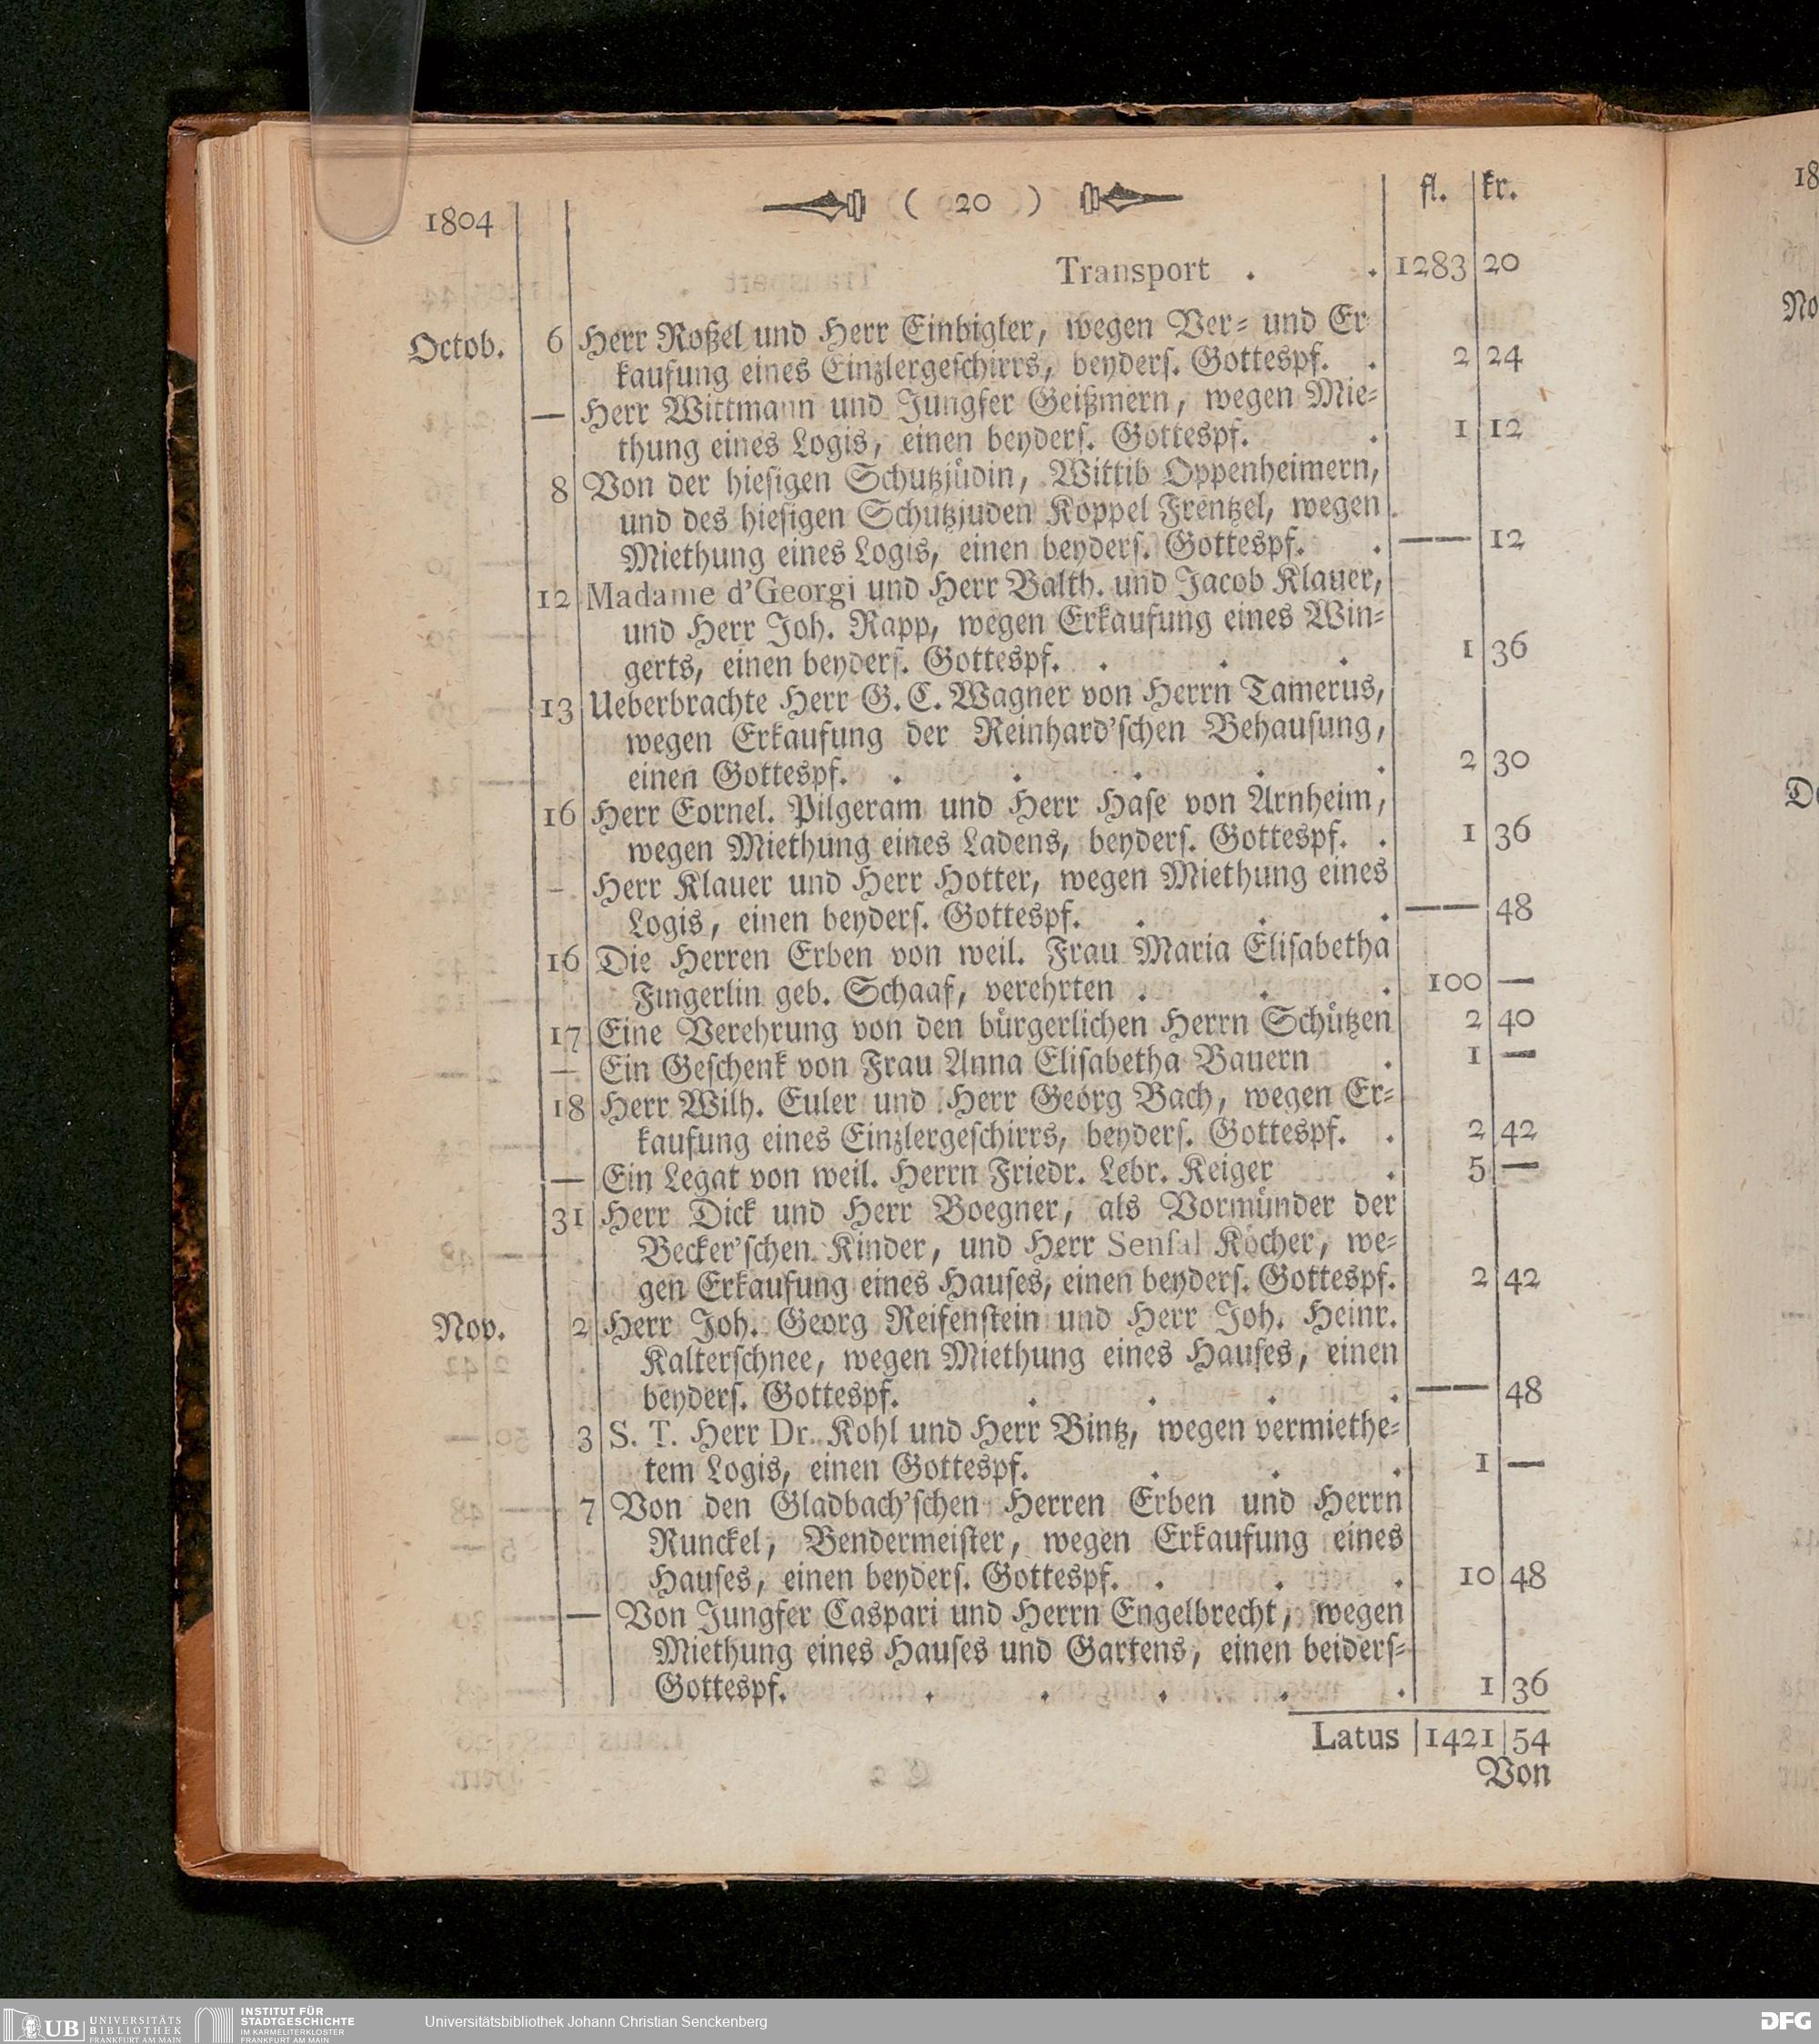 1804 ( 20 ) fl. kr.
Transport . . 1283 20
Octob. 6 Herr Roßel und Herr Einbigler, wegen Ver- und Er
kaufung eines Einzlergeschirrs, beyders. Gottespf. . 2 24
— Herr Wittmann und Jungfer Geißmern, wegen Mie-
thung eines Logis, einen beyders. Gottespf. . 1 12
8 Von der hiesigen Schutzjüdin, Wittib Oppenheimern,
und des hiesigen Schutzjuden Koppel Frentzel, wegen
Miethung eines Logis, einen beyders. Gottespf. . —— 12
12 Madame d'Georgi und Herr Balth. und Jacob Klauer,
und Herr Joh. Rapp, wegen Erkaufung eines Win-
gerts, einen beyders. Gottespf. . . . 1 36
13 Ueberbrachte Herr G. C. Wagner von Herrn Tamerus,
wegen Erkaufung der Reinhard'schen Behausung,
einen Gottespf. . . . . . 2 30
16 Herr Cornel. Pilgeram und Herr Hase von Arnheim,
wegen Miethung eines Ladens, beyders. Gottespf. . 1 36
– Herr Klauer und Herr Hotter, wegen Miethung eines
Logis, einen beyders. Gottespf. . . . —— 48
16 Die Herren Erben von weil. Frau Maria Elisabetha
Fingerlin geb. Schaaf, verehrten . . . 100 —
17 Eine Verehrung von den bürgerlichen Herrn Schützen 2 40
— Ein Geschenk von Frau Anna Elisabetha Bauern . 1 —
18 Herr Wilh. Euler und Herr Georg Bach, wegen Er-
kaufung eines Einzlergeschirrs, beyders. Gottespf. . 2 42
— Ein Legat von weil. Herrn Friedr. Lebr. Keiger . 5 —
31 Herr Dick und Herr Boegner, als Vormünder der
Becker'schen Kinder, und Herr Sensal Köcher, we-
gen Erkaufung eines Hauses, einen beyders. Gottespf. 2 42
Nov. 2 Herr Joh. Georg Reifenstein und Herr Joh. Heinr.
Kalterschnee, wegen Miethung eines Hauses, einen
beyders. Gottespf. . . . . —— 48
3 S. T. Herr Dr. Kohl und Herr Bintz, wegen vermiethe-
tem Logis, einen Gottespf. . . . 1 —
7 Von den Gladbach'schen Herren Erben und Herrn
Runckel, Bendermeister, wegen Erkaufung eines
Hauses, einen beyders. Gottespf. . . . 10 48
— Von Jungfer Caspari und Herrn Engelbrecht, wegen
Miethung eines Hauses und Gartens, einen beiders-
Gottespf. . . . . . 1 36
Latus 1421 54
Von
18
No
UB UNIVERSITÄTS
BIBLIOTHEK
FRANKFURT AM MAIN
INSTITUT FÜR
STADTGESCHICHTE
IM KARMELITERKLOSTER
FRANKFURT AM MAIN
Universitätsbibliothek Johann Christian Senckenberg
DFG